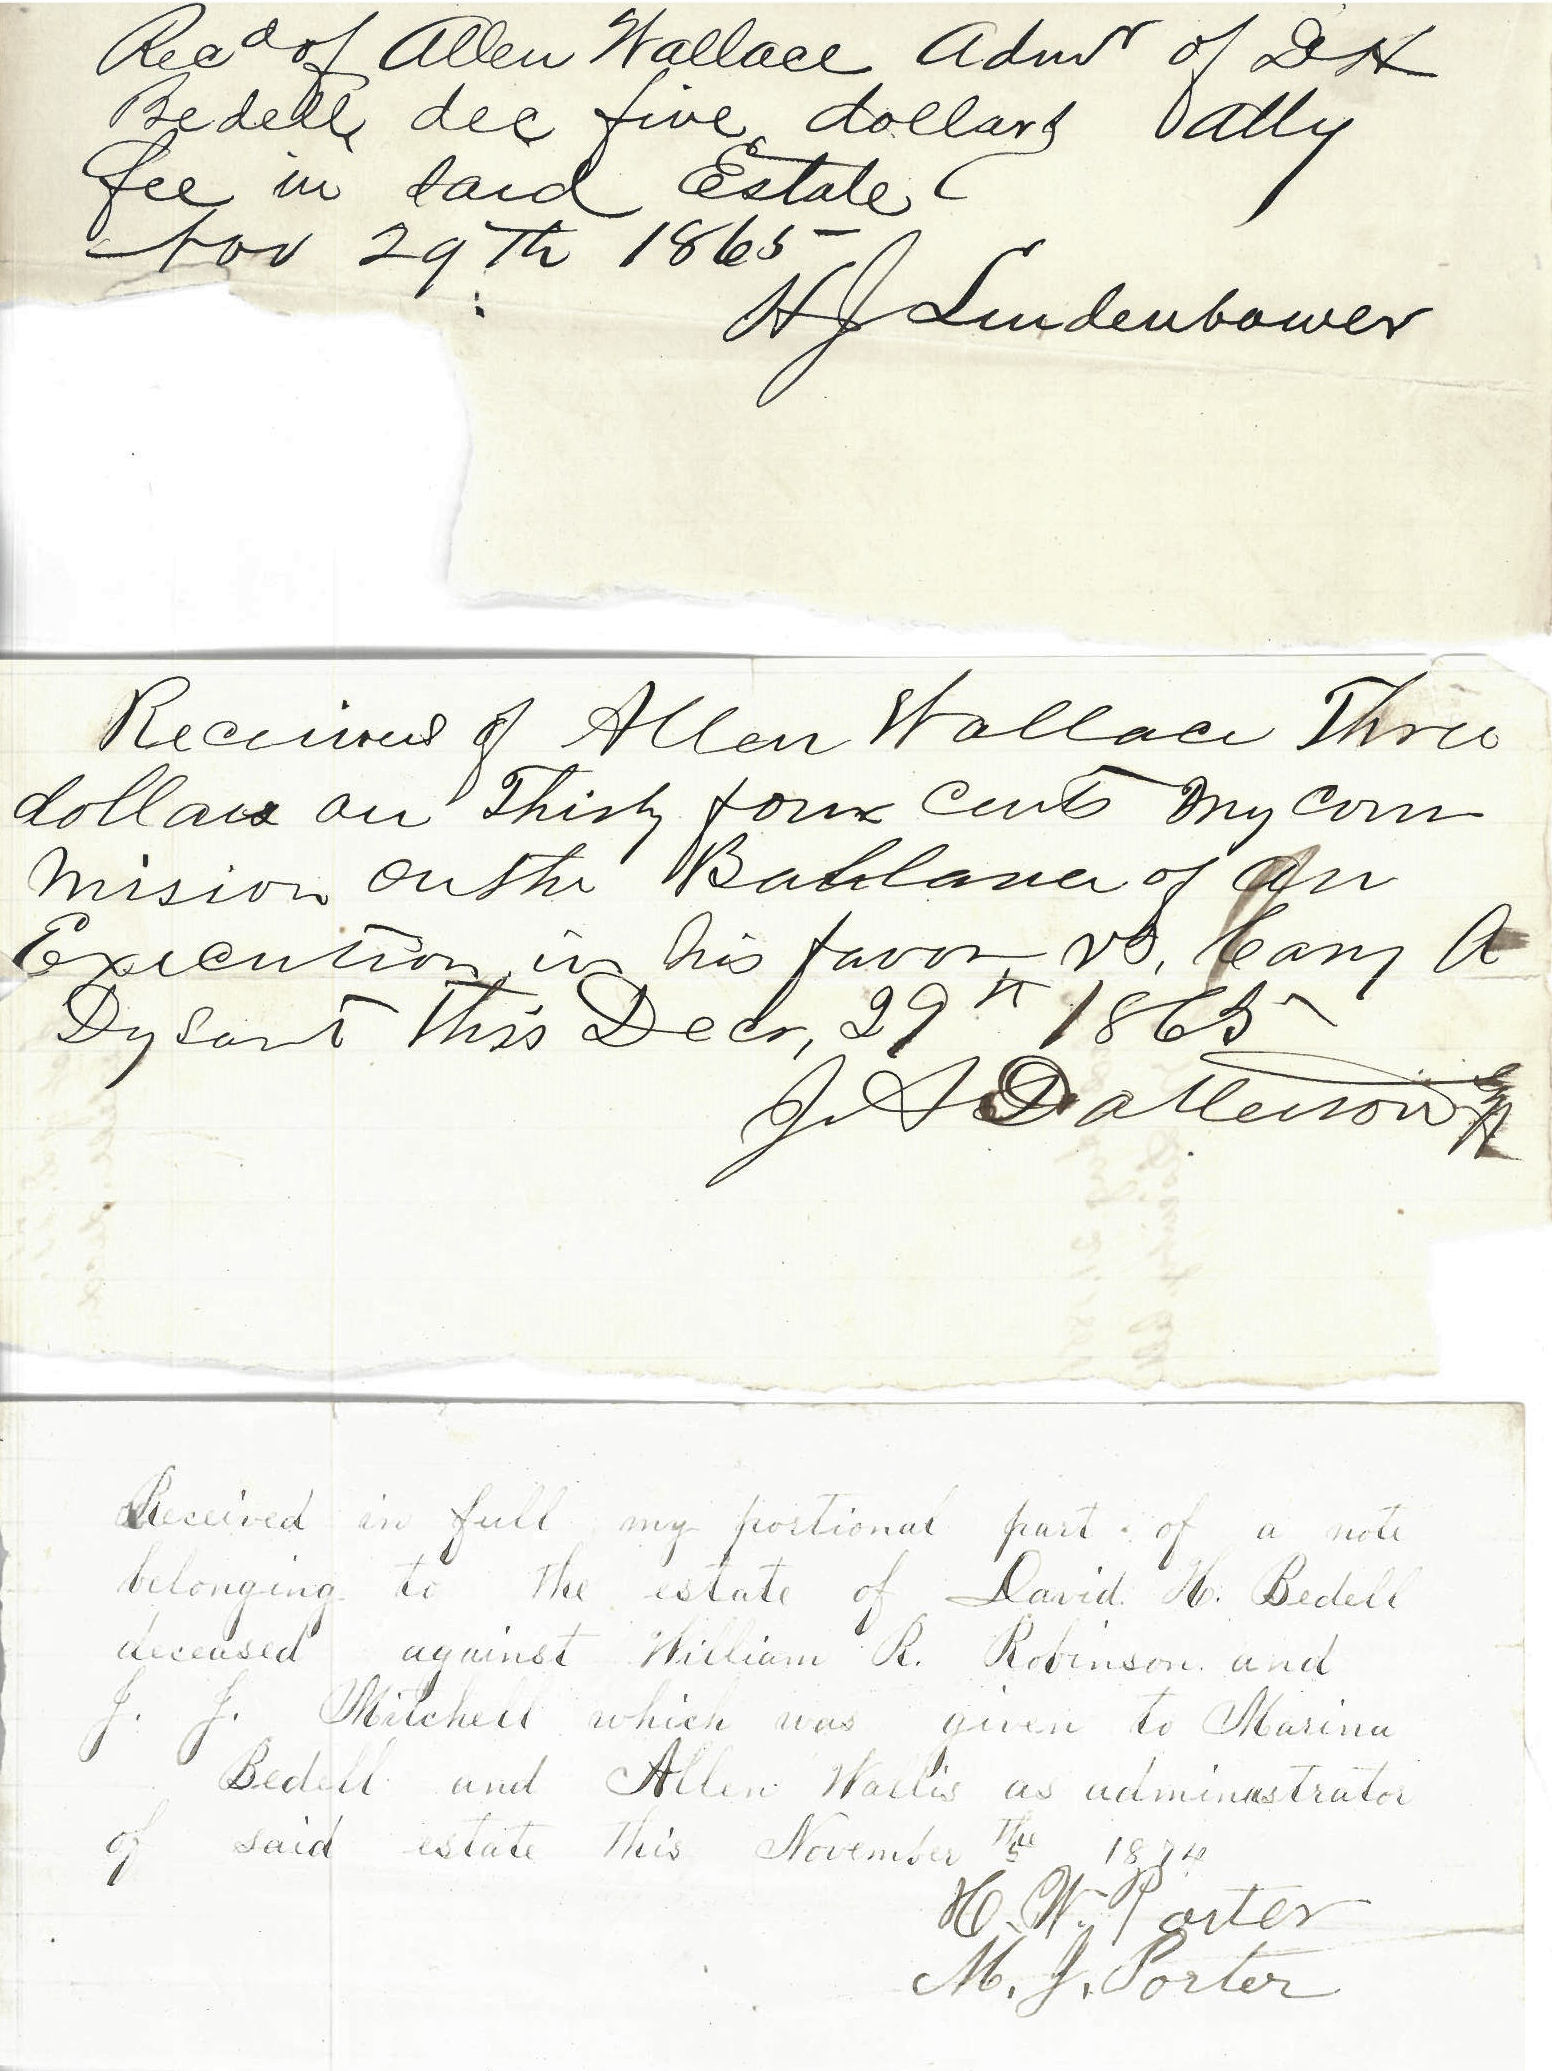 Recd of Allen Wallace Admr of D H
Bedell dec five dollars atty
fee in said Estate
Nov 29th 1865
H J Lindenbower
Received of Allen Wallace Three
dollars an Thirty four cents my com
mision on the Ballance of An
Execution in his favor vs. Cary A
Dysart This Decr, 29th 1865
J. A Patterson
Received in full my portional part of a note
belonging to the estate of David H. Bedell
deceased against William R. Robinson and
J. J. Mitchell which was given to Marina
Bedell and Allen Wallis as administrator
of said estate this November The 5 1874
H. W. Porter
M. J. Porter